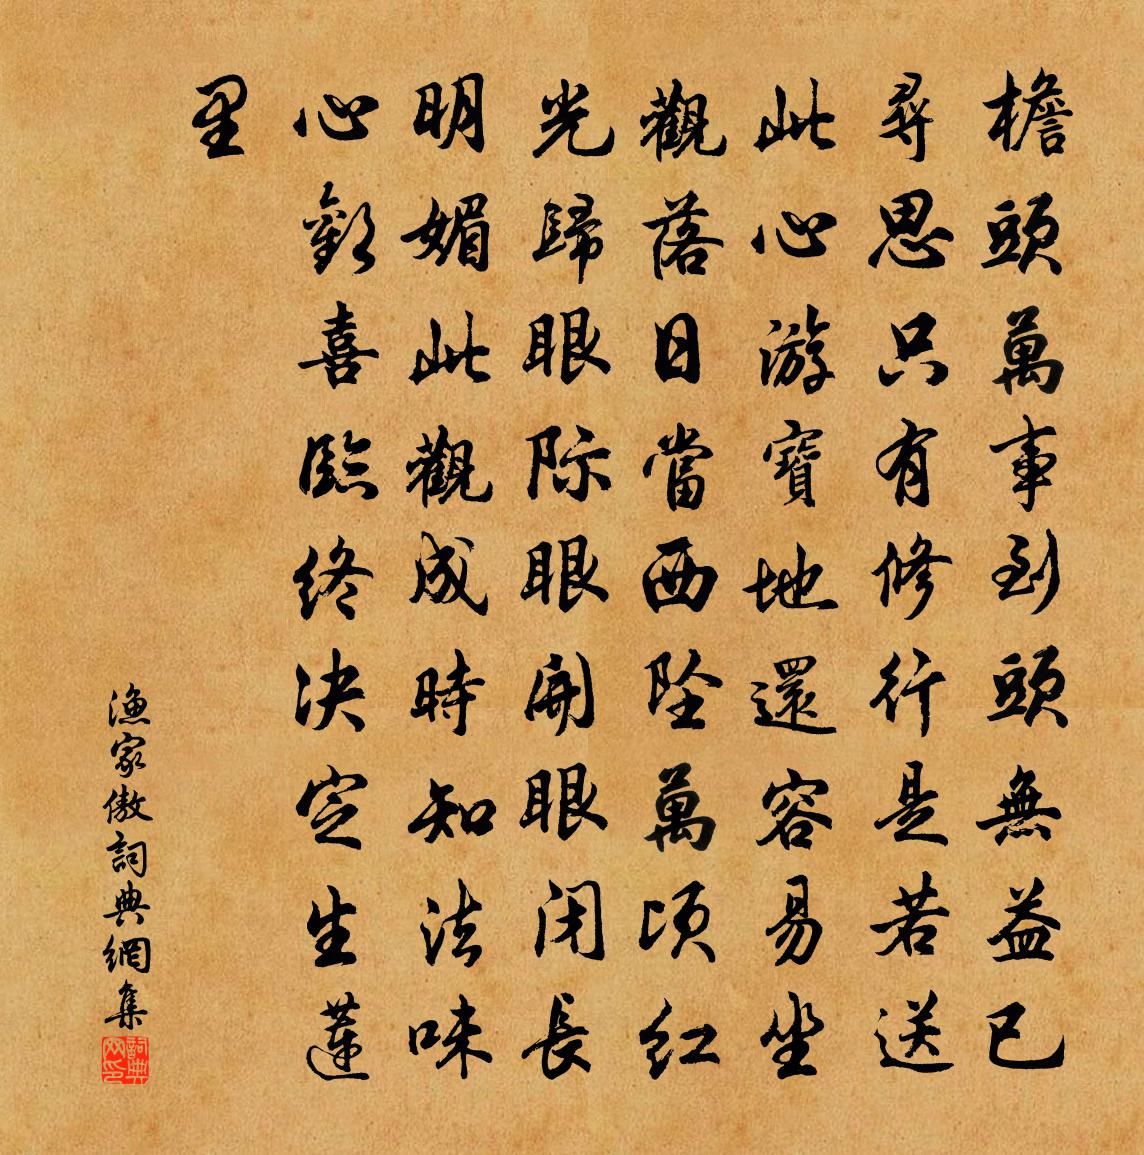 檐頭萬事到頭無益已
尋思只有修行是若送
此心游寶地還容易坐
觀落日當西坠萬顷红
光歸眼际眼開眼闭長
明媚此觀成時知法味
心歡喜臨终决定生蓮
里
渔家傲詞典網集
詞典网印